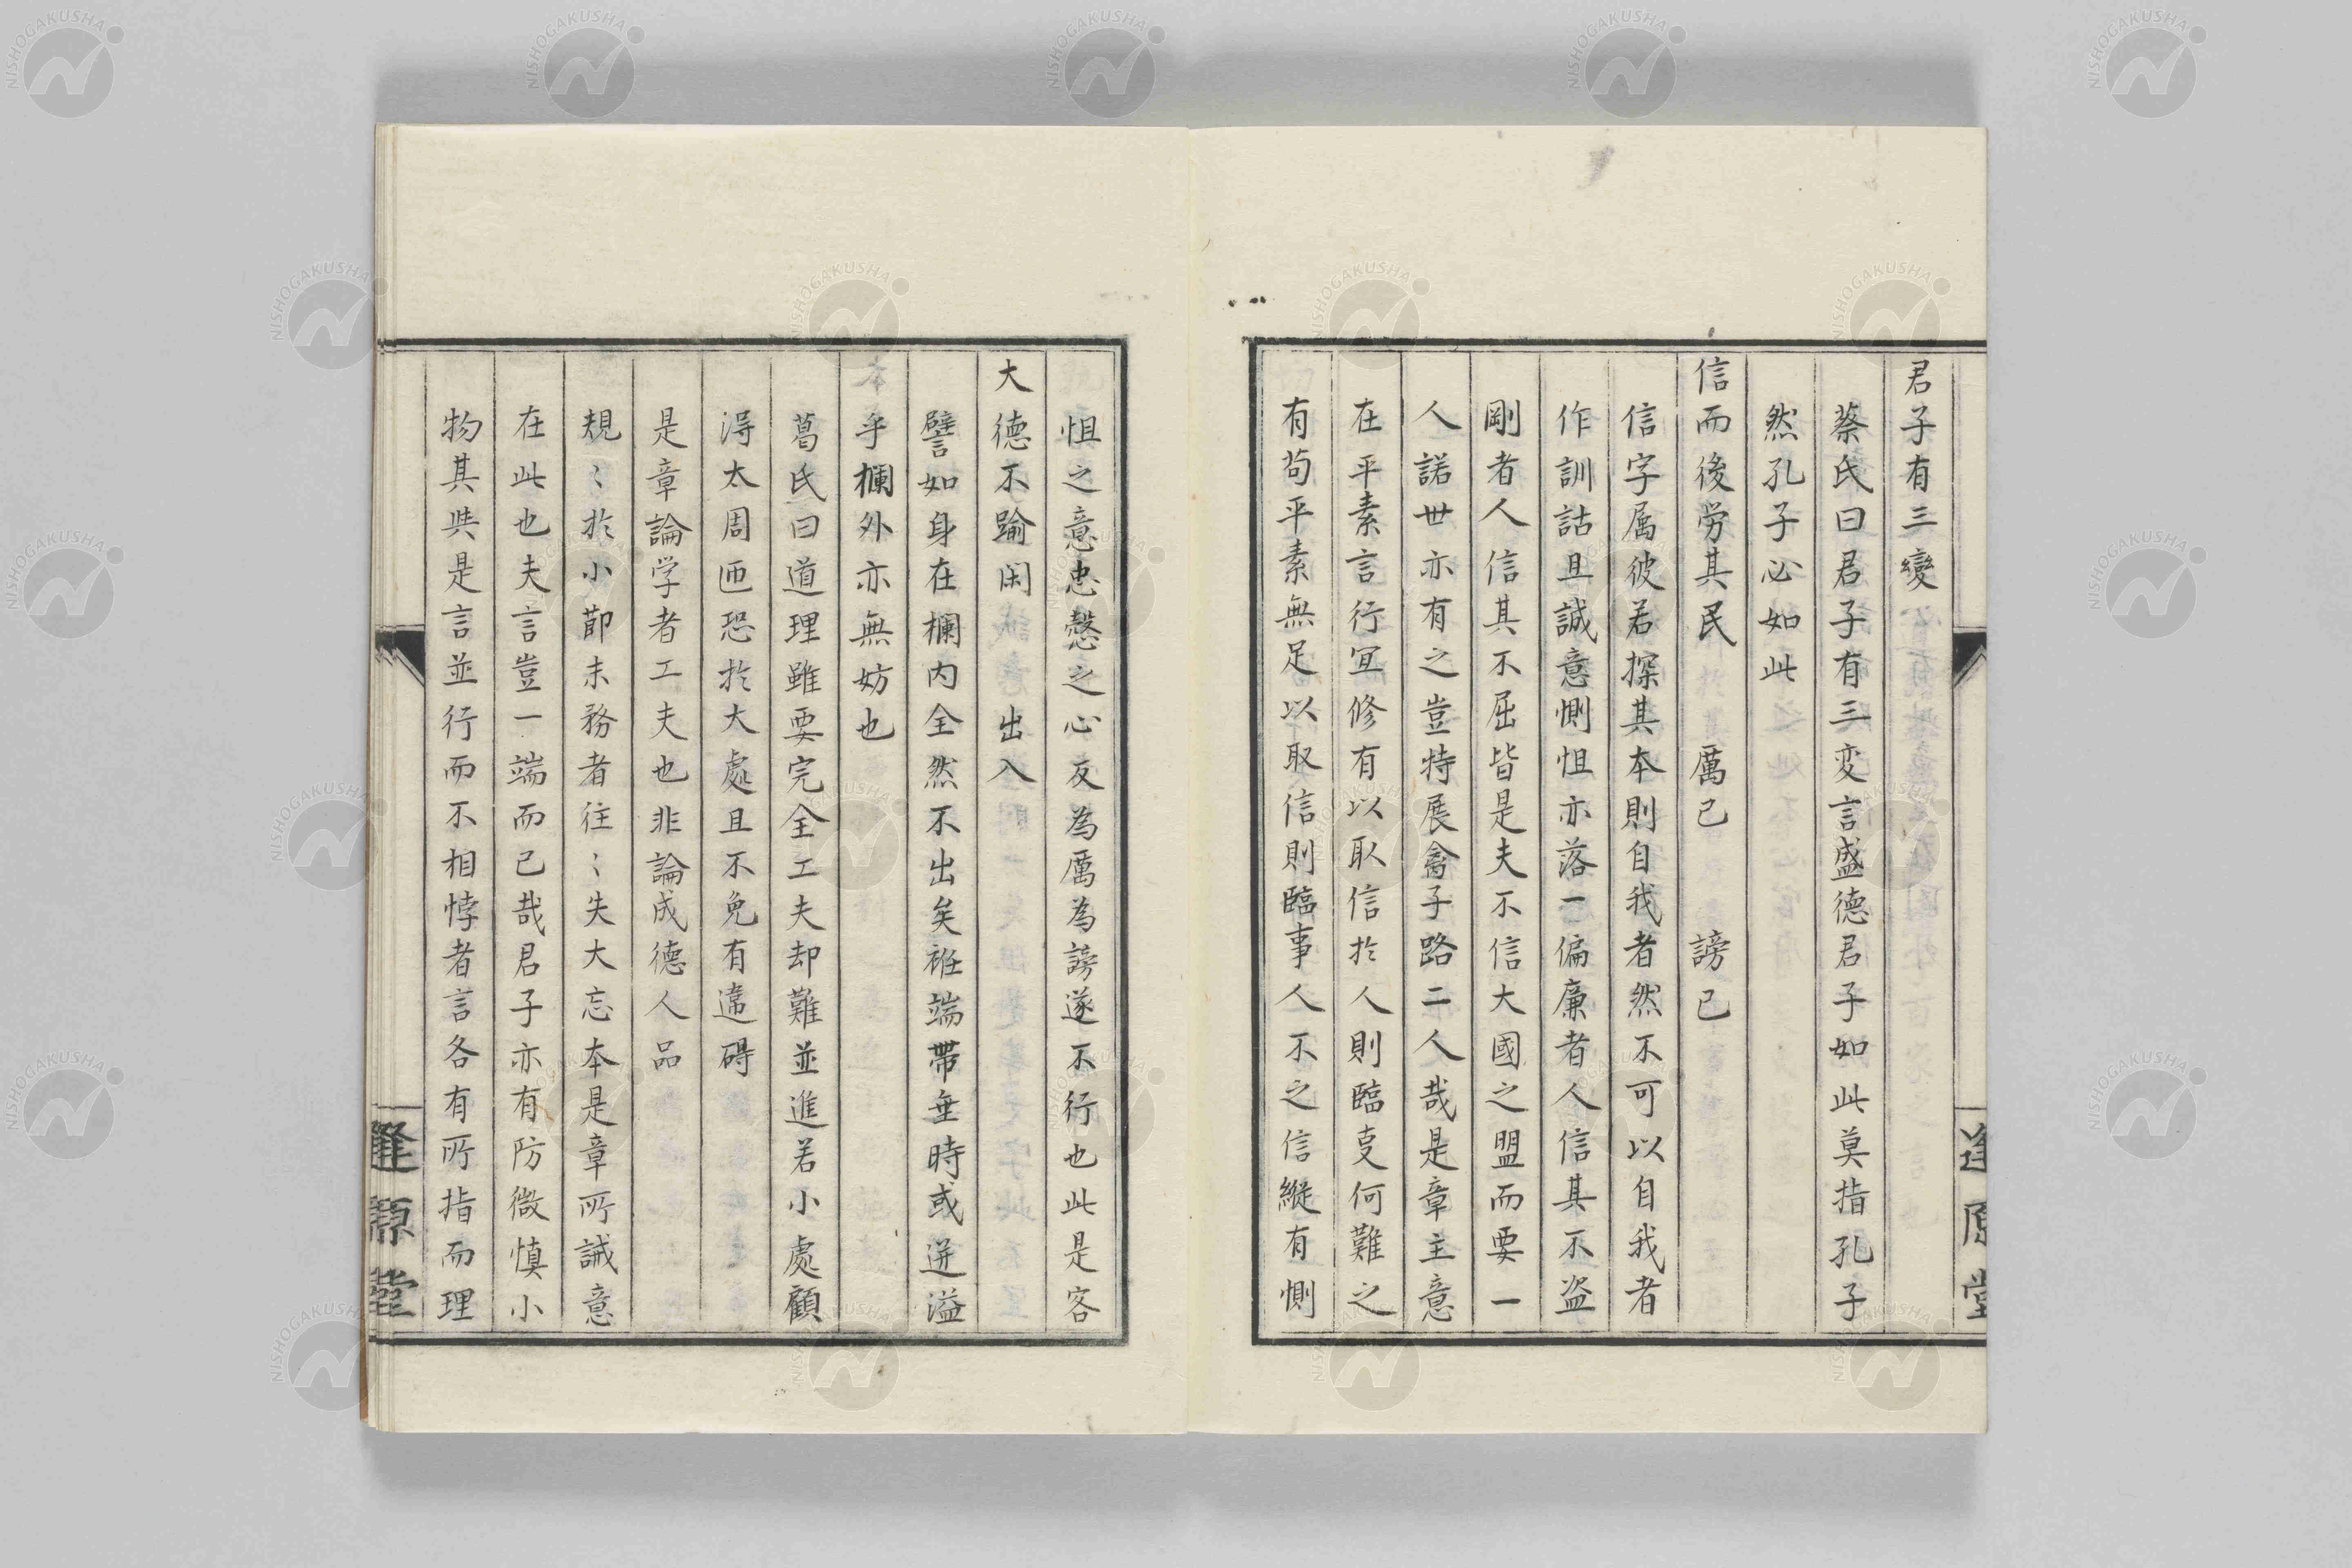 君子有三變
蔡氏曰君子有三変言盛德君子如此莫指孔子
然孔子必如此
信而後労其民 厲己 謗己
信字属彼若探其本則自我者然不可以自我者
作訓詁且誠意惻怛亦落一偏廉者人信其不盗
剛者人信其不屈皆是夫不信大國之盟而要一
人諾世亦有之豈特展禽子路二人哉是章主意
在平素言行冝修有以取信於人則臨叓何難之
有苟平素無足以取信則臨事人不之信縦有惻
怛之意忠慤之心反為厲為謗遂不行也此是客
大德不踰閑 出入
譬如身在欄内全然不出矣袵端帶垂時或迸溢
乎欄外亦無妨也
葛氏曰道理雖要完全工夫却難並進若小處顧
淂太周匝恐於大處且不免有違碍
是章論学者工夫也非論成德人品
規〻於小節末務者往〻失大忘本是章所誡意
在此也夫言豈一端而已哉君子亦有防微慎小
物其与是言並行而不相悖者言各有所指而理
逢原堂
逢原堂
NISHOGAKUSHA